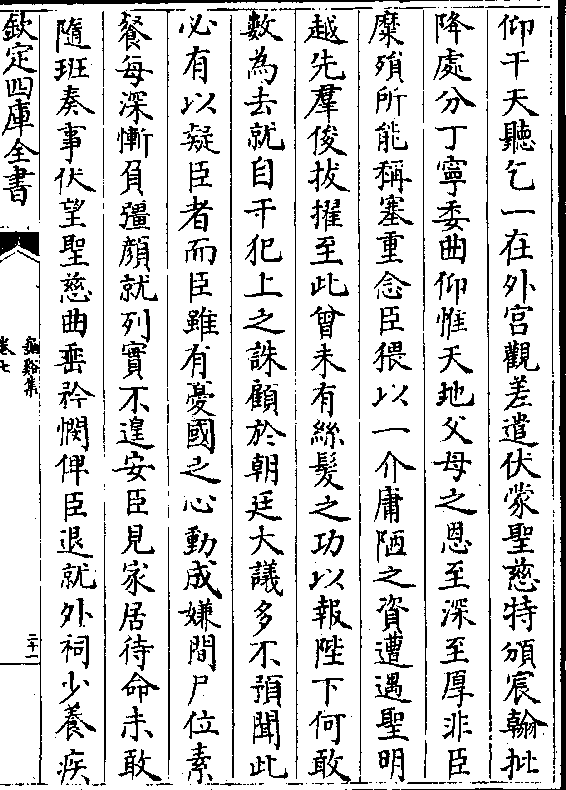 仰干天聽乞一在外宮觀差遣伏蒙聖慈特頒宸翰批
降處分丁寧委曲仰惟天地父母之恩至深至厚非臣
糜殞所能稱塞重念臣猥以一介庸陋之資遭遇聖明
越先羣俊拔擢至此曾未有絲髮之功以報陛下何敢
數為去就自干犯上之誅顧於朝廷大議多不預聞此
必有以疑臣者而臣雖有憂國之心動成嫌間尸位素
餐每深慚負彊顏就列實不遑安臣見家居待命未敢
隨班奏事伏望聖慈曲垂矜憫俾臣退就外祠少養疾
欽定四庫全書
龜谿集
卷七
二十一